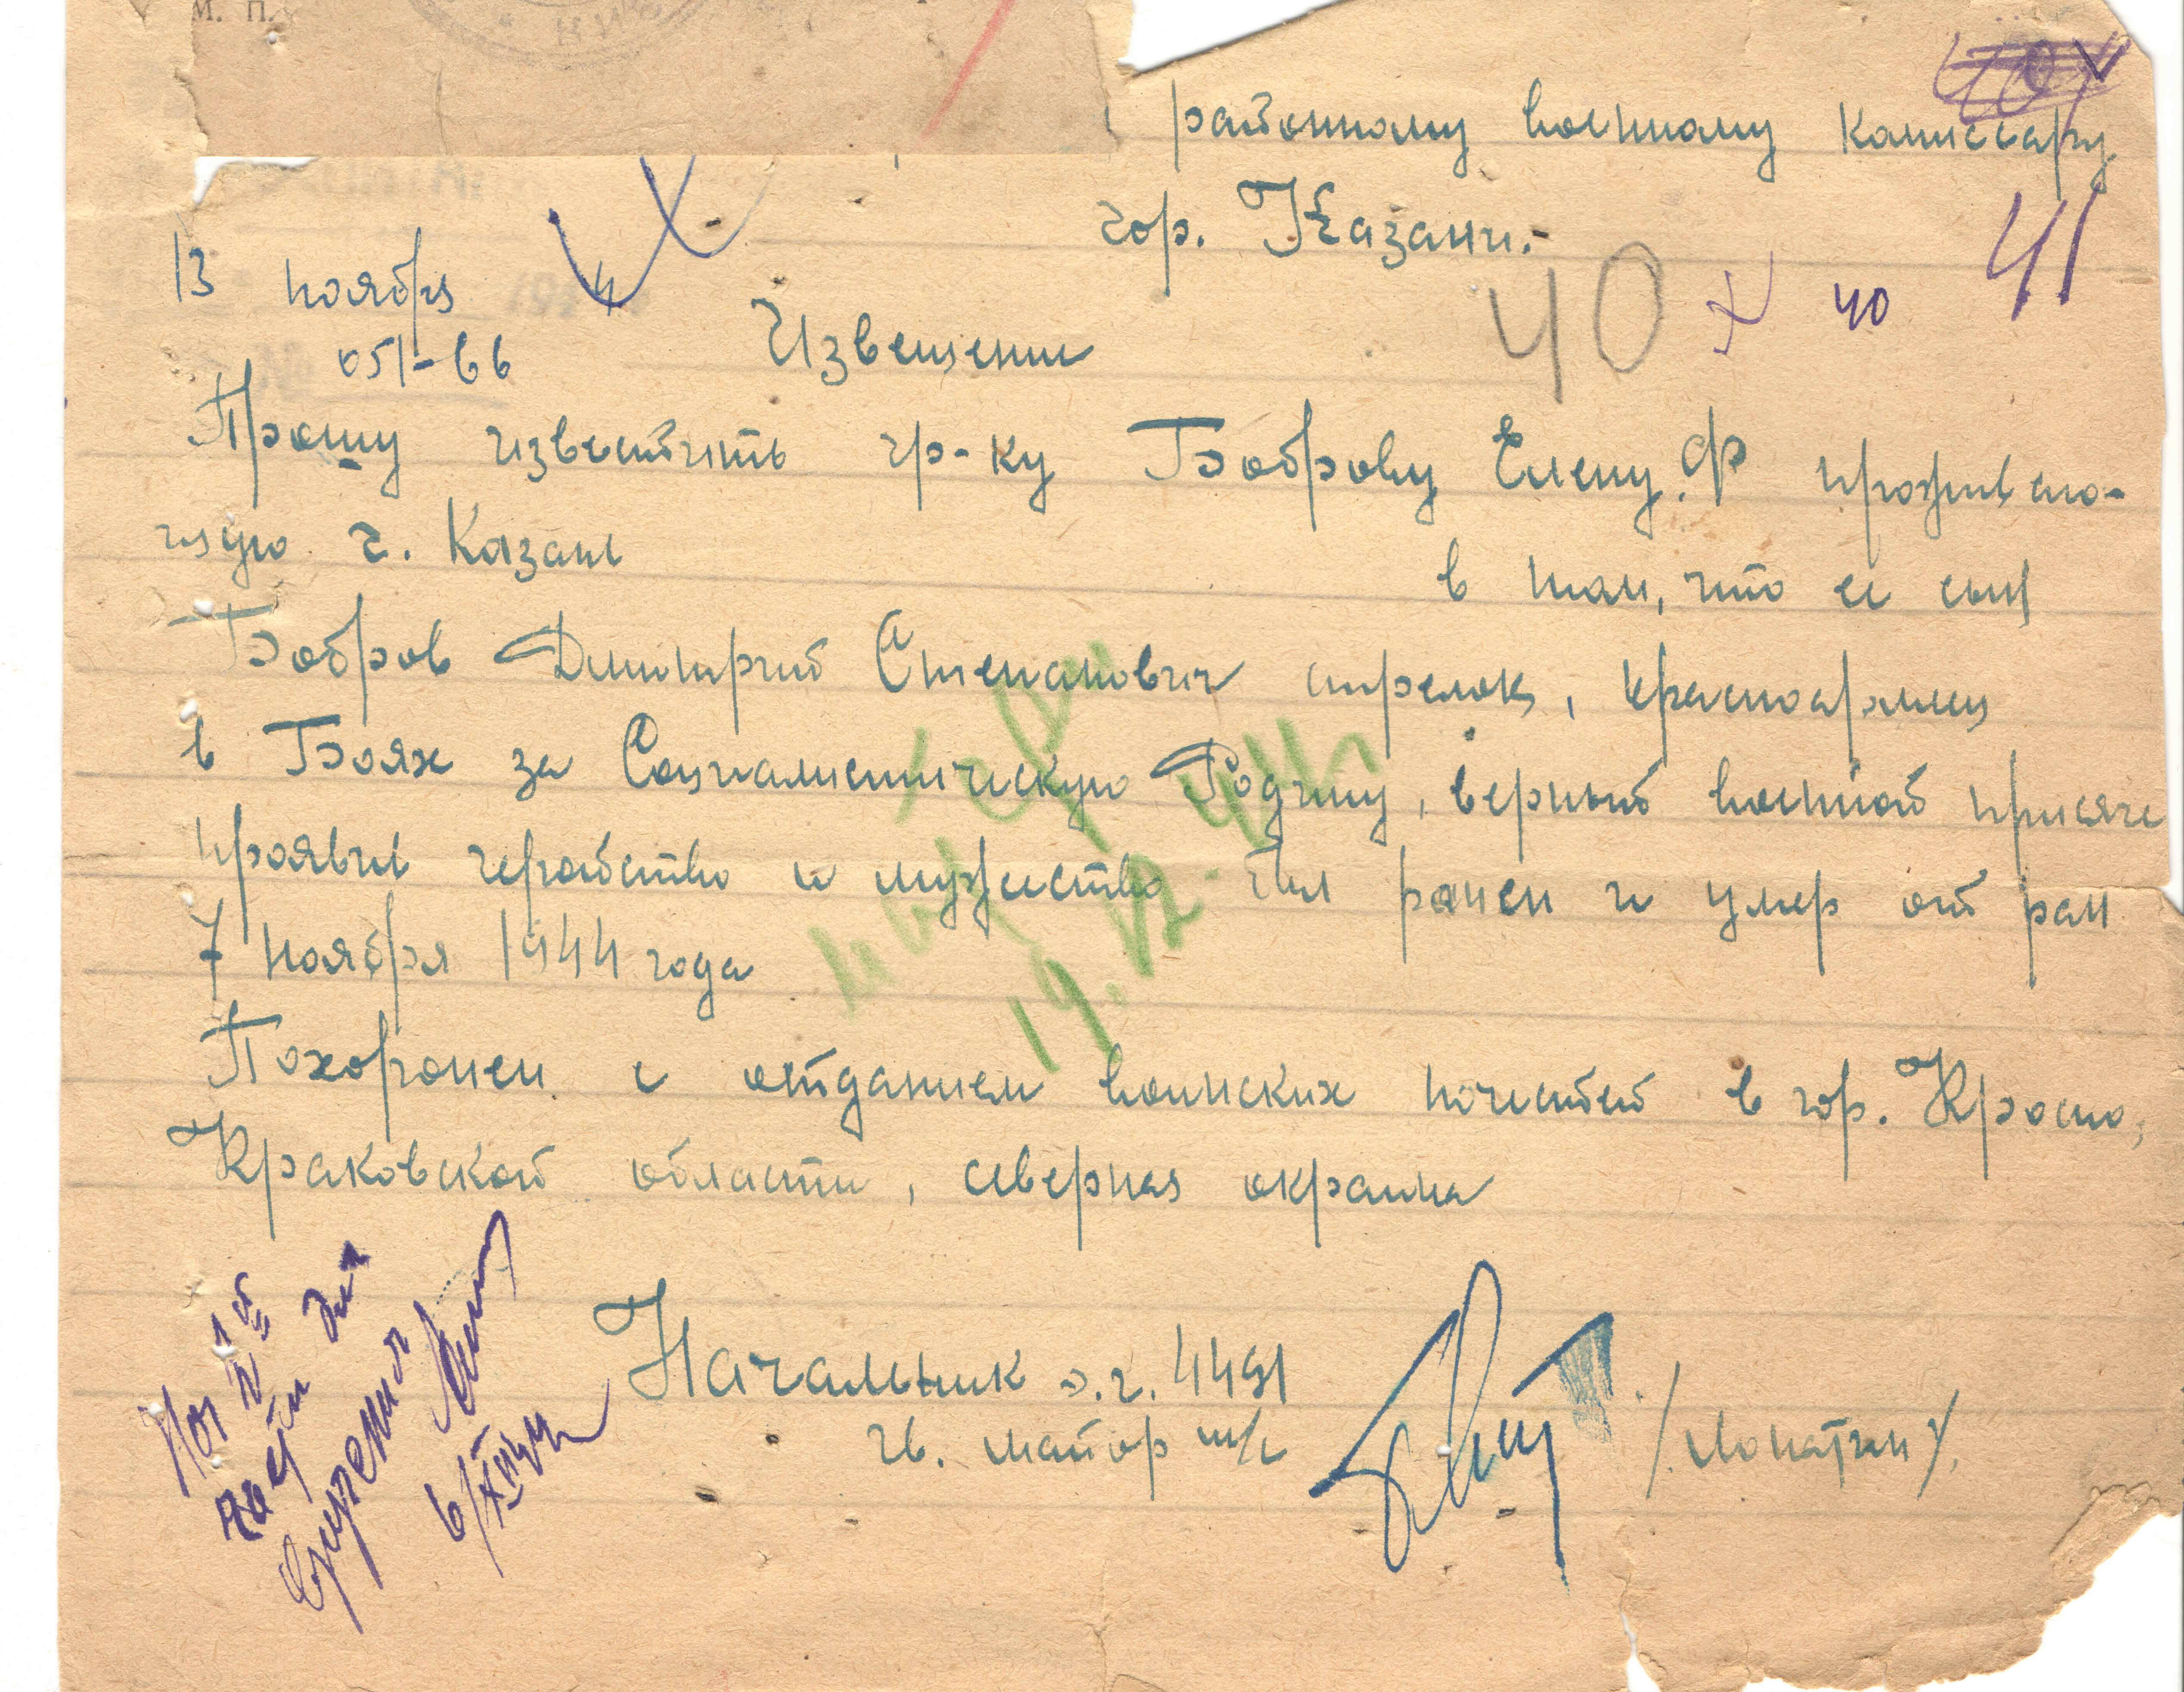 М. П.
районному военному комиссару
гор. Казани.
41
40 40
13 ноября 4
051-вв
Извещение
Прошу известить гр-ку Боброву Елену. Ф проживаю-
щую г. Казань
в том, что ее сын
Бобров Дмитрий Степанович стрелок, красноармеец
в Боях за Социалистическую Родину, верный военной присяге
проявив геройство и мужество был ранен и умер от ран
7 ноября 1944 года
Похоронен с отданием воинских почестей в гор. Кросно,
Краковской области, северная окраина
19.12.44.
Начальник э.г. 4491
гв. майор м/с /Лопаткин/.
для
вручения